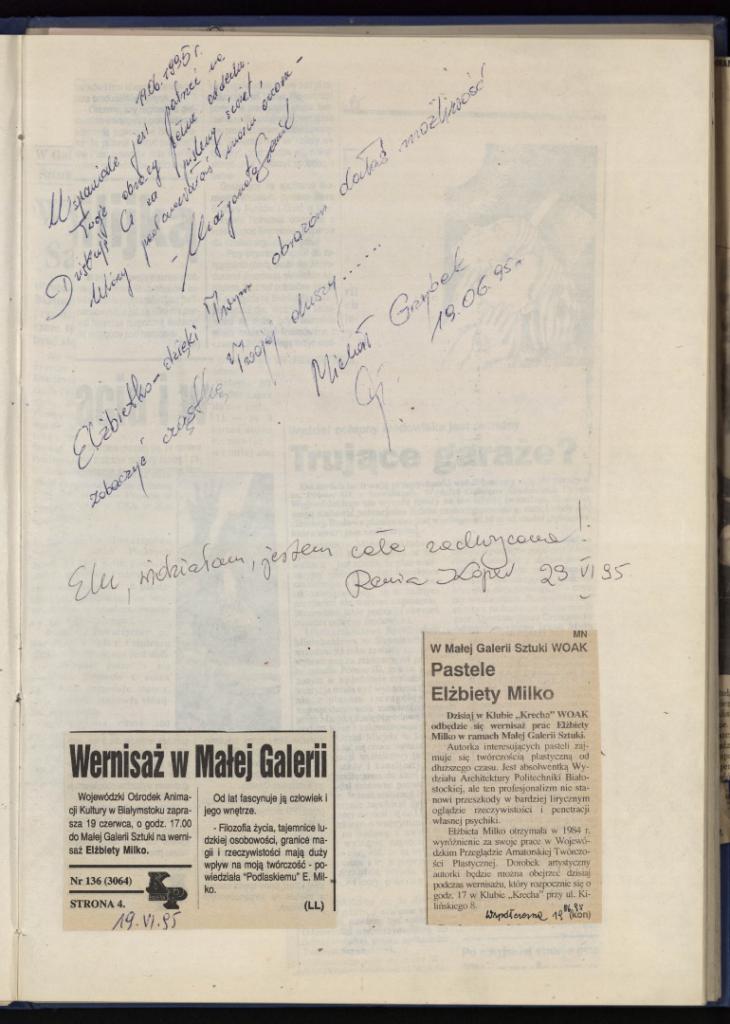 19.06.1995 r.
Wspaniale jest patrzeć na
Twoje obrazy pełne
Dziękuję Ci za piękny świat,
który
- Małgorzata
Elżbietko - dzięki Twym obrazom dałaś możliwość
zobaczyć cząstkę Twojej duszy......
Michał Grzybek
19.06.95r.
Elu, widziałam, jestem cała zachwycona!
23 VI 95
MN
W Małej Galerii Sztuki WOAK
Pastele
Elżbiety Milko
Dzisiaj w Klubie „Krecha” WOAK
odbędzie się wernisaż prac Elżbiety
Milko w ramach Małej Galerii Sztuki.
Autorka interesujących pasteli zaj-
muje się twórczością plastyczną od
dłuższego czasu. Jest absolwentką Wy-
działu Architektury Politechniki Biało-
stockiej, ale ten profesjonalizm nie sta-
nowi przeszkody w bardziej lirycznym
oglądzie rzeczywistości i penetracji
własnej psychiki.
Elżbieta Milko otrzymała w 1984 r.
wyróżnienie za swoje prace w Wojewó-
dzkim Przeglądzie Amatorskiej Twórczo-
ści Plastycznej. Dorobek artystyczny
autorki będzie można obejrzeć dzisiaj
podczas wernisażu, który rozpocznie się o
godz. 17 w Klubie „Krecha” przy ul. Ki-
lińskiego 8.
Współczesna 19 06.95 (kon)
Wernisaż w Małej Galerii
Wojewódzki Ośrodek Anima-
cji Kultury w Białymstoku zapra-
sza 19 czerwca, o godz. 17.00
do Małej Galerii Sztuki na werni-
saż Elżbiety Milko.
Nr 136 (3064)
STRONA 4.
KP
19.VI.95
Od lat fascynuje ją człowiek i
jego wnętrze.
- Filozofia życia, tajemnice lu-
dzkiej osobowości, granice ma-
gii i rzeczywistości mają duży
wpływ na moją twórczość - po-
wiedziała "Podlaskiemu" E. Mil-
ko.
(LL)
Trujące garaże?